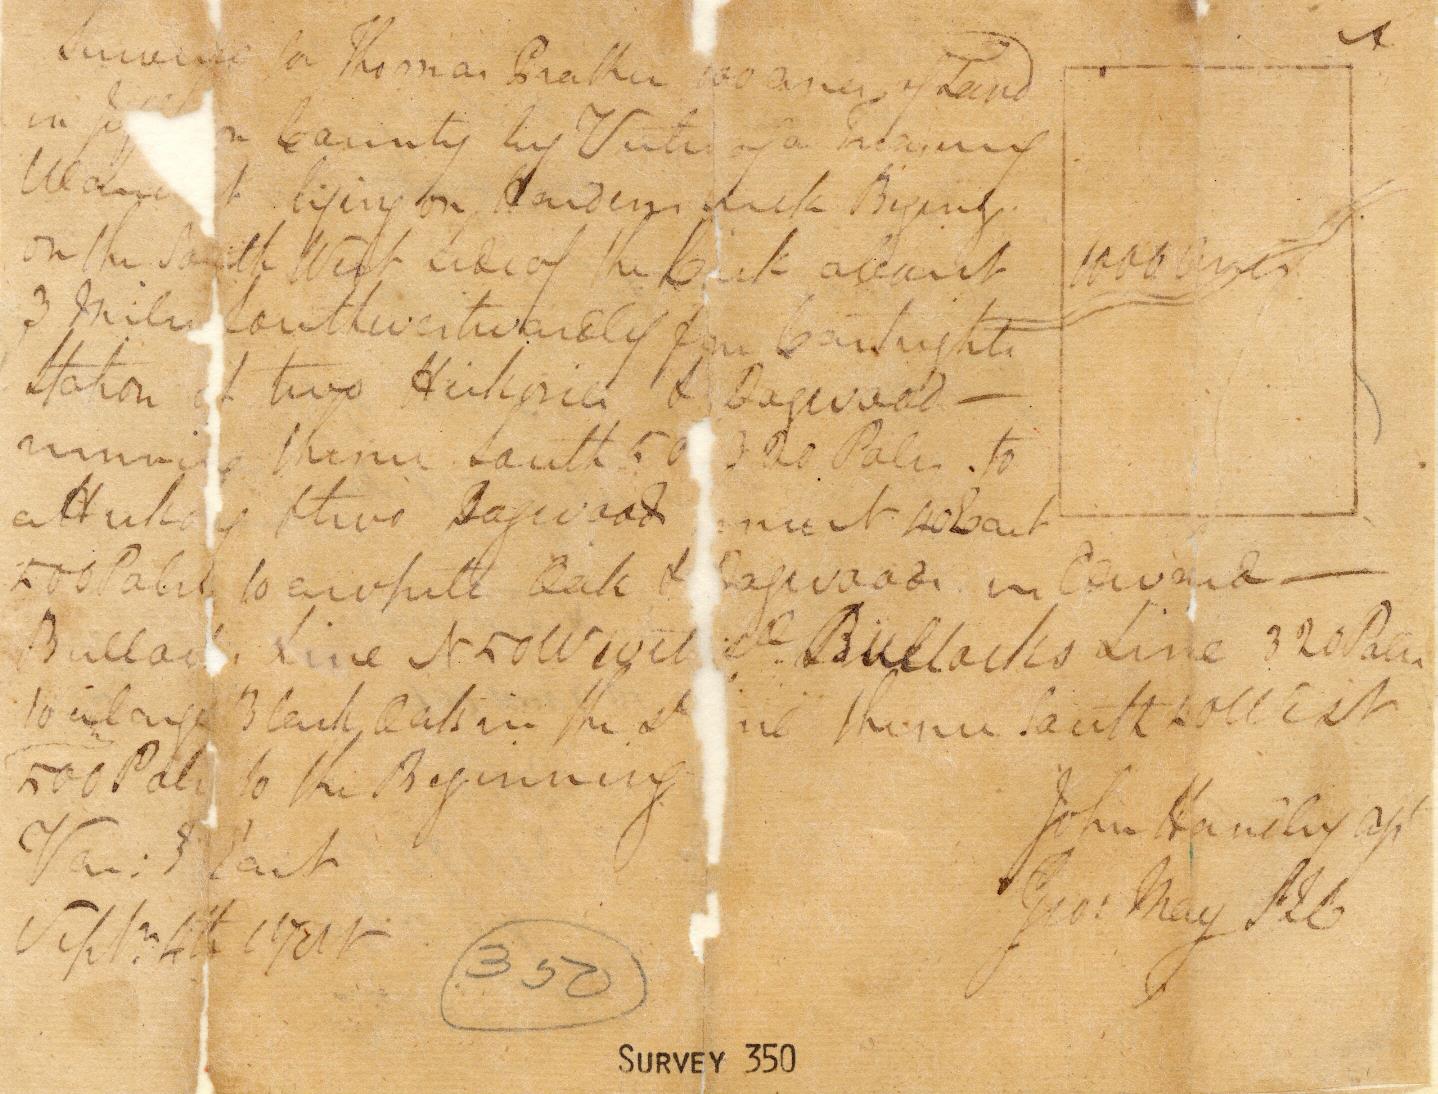 Thomas Prather 1000 acres of Land
in County by Virtue of a Treasury
lying on Hardens Creek Begining
on the South West side of the Creek about
3 Miles Southwestwardly from Cartrights
Station at two Hickories & Dogwood —
running thence South 50 320 Poles to
a Hickory & two Dogwood 40 East
500 Poles to a white Oak & Dogwoods in —
Bullocks Line N 50 W with sd. Bullocks Line 320 Poles
to a large Black Oak in the sd thence South 40 West
500 Poles to the Beginning
Var: 3 East
Septr. 4th
John Handley
Geo: May
1000 Acres
350
SURVEY 350